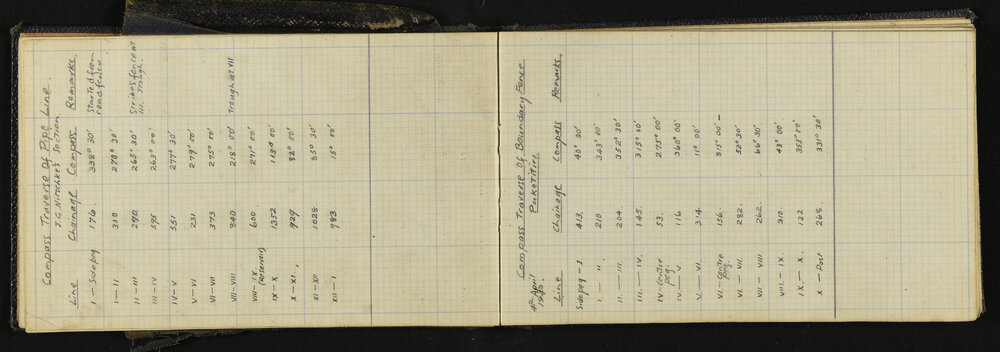 Compass Traverse of Pipe Line.
J.G. Nitschke's Section
Line Chainage Compass Remarks.
I — Side peg 176. 338° 30' Started from road fence
I — II 310 270° 30'
II — III 290. 265° 30' Strikes fence at III. Trough.
III — IV 595 263° 00'
IV — V 551 277° 30'
V — VI 231 279° 00'
VI — VII 373 275° 00'
VII — VIII 840 218° 00' Trough at VII
VIII — IX (Reservoir) 600. 271° 00'
IX — X. 1352 113° 00'
X — XI. 929 82° 00'
XI — XII 1028 85° 30'
XII — I 983 15° 00'
4th April 1940
Compass Traverse of Boundary Fence.
Puketitiri
Line Chainage Compass Remarks.
Side peg — I 413. 40° 00'
I. — II. 210 343° 00'
II. — III. 204. 352° 30'
III. — IV. 145. 315° 00'
IV — Centre peg. 53. 275° 00'
IV — V 116 360° 00'
V. — VI. 314. 11° 00'
VI. — Centre peg. 156. 315° 00'
VI. — VII. 282. 52° 30'
VII — VIII 262. 66° 30'
VIII. — IX 310 43° 00'
IX. — X. 122 353° 00'
X — Post 268. 331° 30'